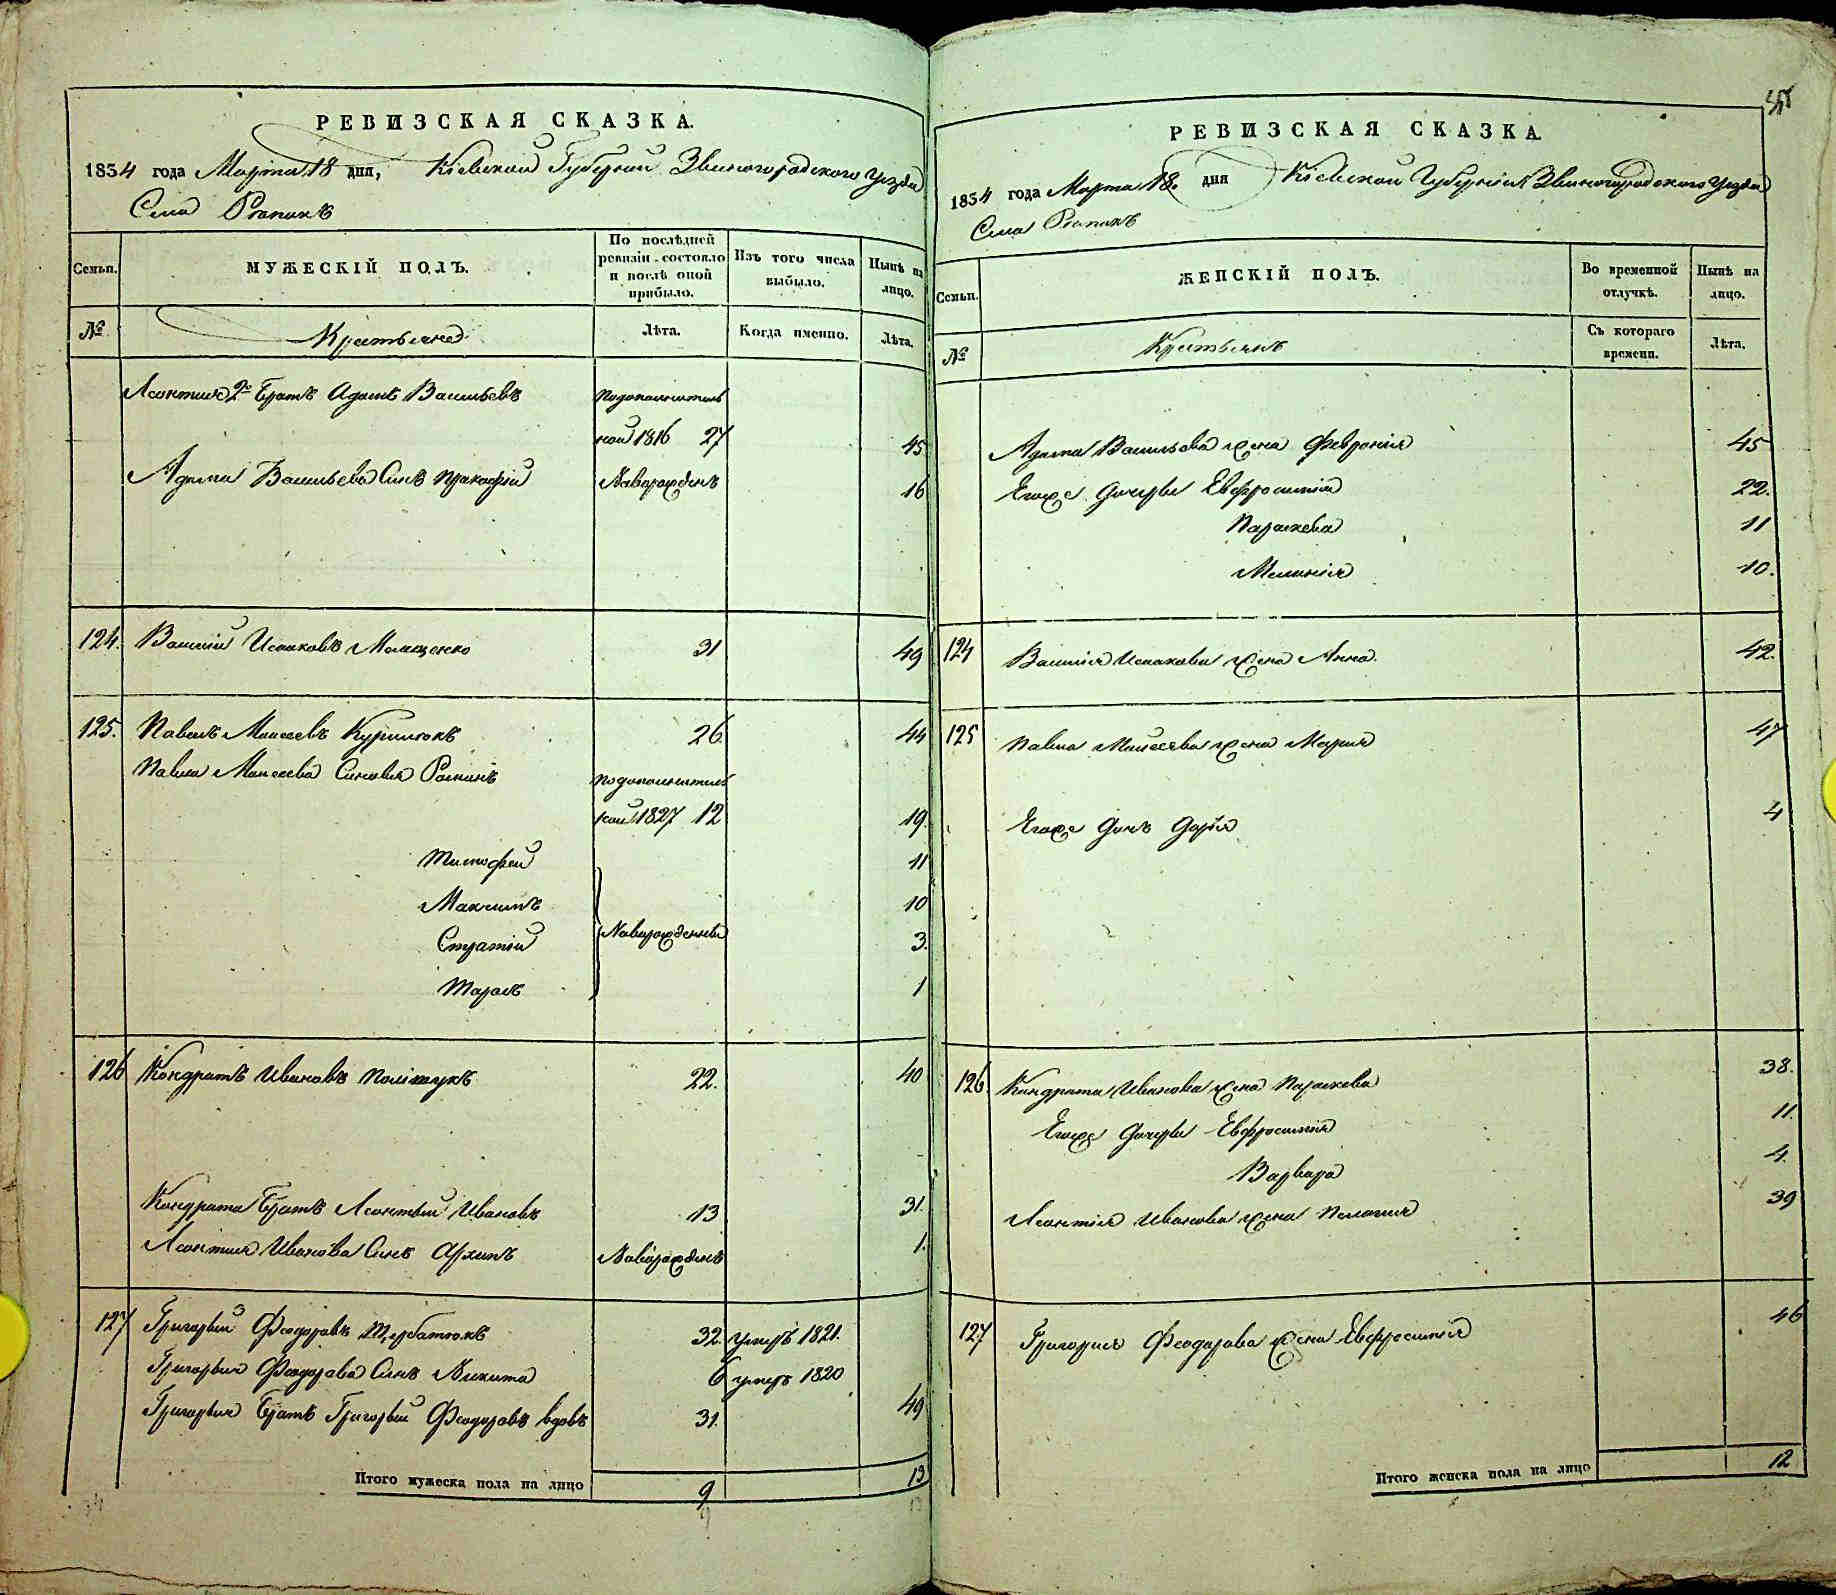 РЕВИЗСКАЯ СКАЗКА.
1834 года Марта 18 дня, Кіевской Губерніи Звиногородского уезда
Села
Семьи. МУЖЕСКІЙ ПОЛЪ. По послѣдней ревизіи состояло и послѣ оной прибыло. Изъ того числа выбыло. Нынѣ на лицо.
№ Крестьяне Лѣта. Когда именно. Лѣта.
Леонтия 2й Братъ Адамъ Васильевъ Подополнитель
ной 1816 27 45
Адама Васильева Сынъ Прокофій Новорожденъ 16
124. Василій Исаковъ 31 49
125. Павелъ Моисеевъ 26. 44
Павла Моисеева Сыновья Романъ Подополнитель
ной 1827 12 19.
Тимофей 11
Максимъ 10
Новорожденны
Стратій 3.
Тарасъ 1
126 Кондратъ Ивановъ Полищукъ 22. 40
Кондрата Братъ Леонтий Ивановъ 13 31.
Леонтия Иванова Сынъ Архипъ Новорожденъ 1.
127 Григорий Феодоровъ Щербатюкъ 32. умеръ 1821.
Григория Феодорова Сынъ Никита 6 умеръ 1820
Григория Братъ Григорий Феодоровъ вдовъ 31. 49
Итого мужеска пола на лицо 9 13
РЕВИЗСКАЯ СКАЗКА.
1834 года Марта 18. дня Кіевской Губерніи Звиногородского уезда
Села
Семьи. ЖЕНСКІЙ ПОЛЪ. Во временной отлучкѣ. Нынѣ на лицо.
№ Крестьянъ Съ котораго времени. Лѣта.
Адама Васильева жена Феврония 45
Егоже дочери Евфросиния 22.
Параскева 11
Мелания 10.
124 Василия Исакова жена Анна. 42.
125 Павла Моисеева жена Мария 47
Егоже дочь Дария 4
126. Кондрата Иванова жена Параскева 38.
Егоже дочери Евфросиния 11.
Варвара 4.
Леонтия Иванова жена Пелагия 39
127 Григория Феодорова жена Евфросиния 46
Итого женска пола на лицо 12